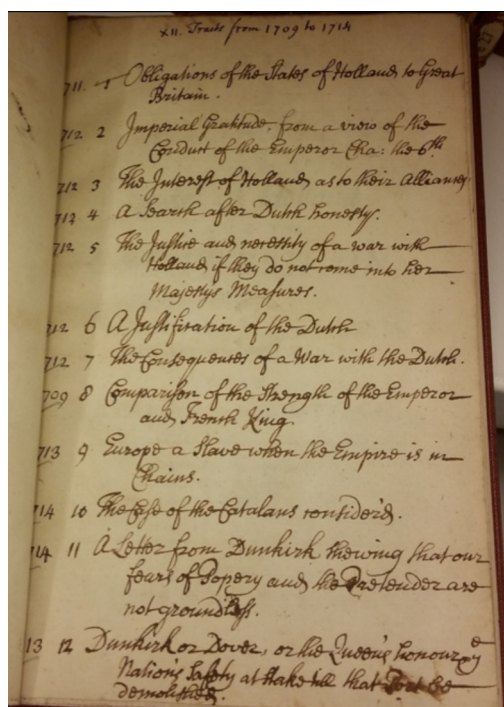 XII. Tracts from 1709 to 1714
711. 1 Obligations of the States of Holland to Great
Britain.
712 2 Imperial Gratitude, from a view of the
Conduct of the Emperor Cha: the 6th.
712 3 The Interest of Holland as to their Alliances.
712 4 A Search after Dutch honesty.
712 5 The Justice and necessity of a war with
Holland if they do not come into her
Majestys Measures.
712 6 A Justification of the Dutch
712 7 The Consequences of a War with the Dutch.
709 8 Comparison of the Strength of the Emperor
and French King.
713 9 Europe a Slave when the Empire is in
Chains.
714 10 The Case of the Catalans consider'd.
714 11 A Letter from Dunkirk shewing that our
fears of Popery and the Pretender are
not groundless.
13 12 Dunkirk or Dover, or the Queen's honour ye
Nation's safety at stake till that Port be
demolished.